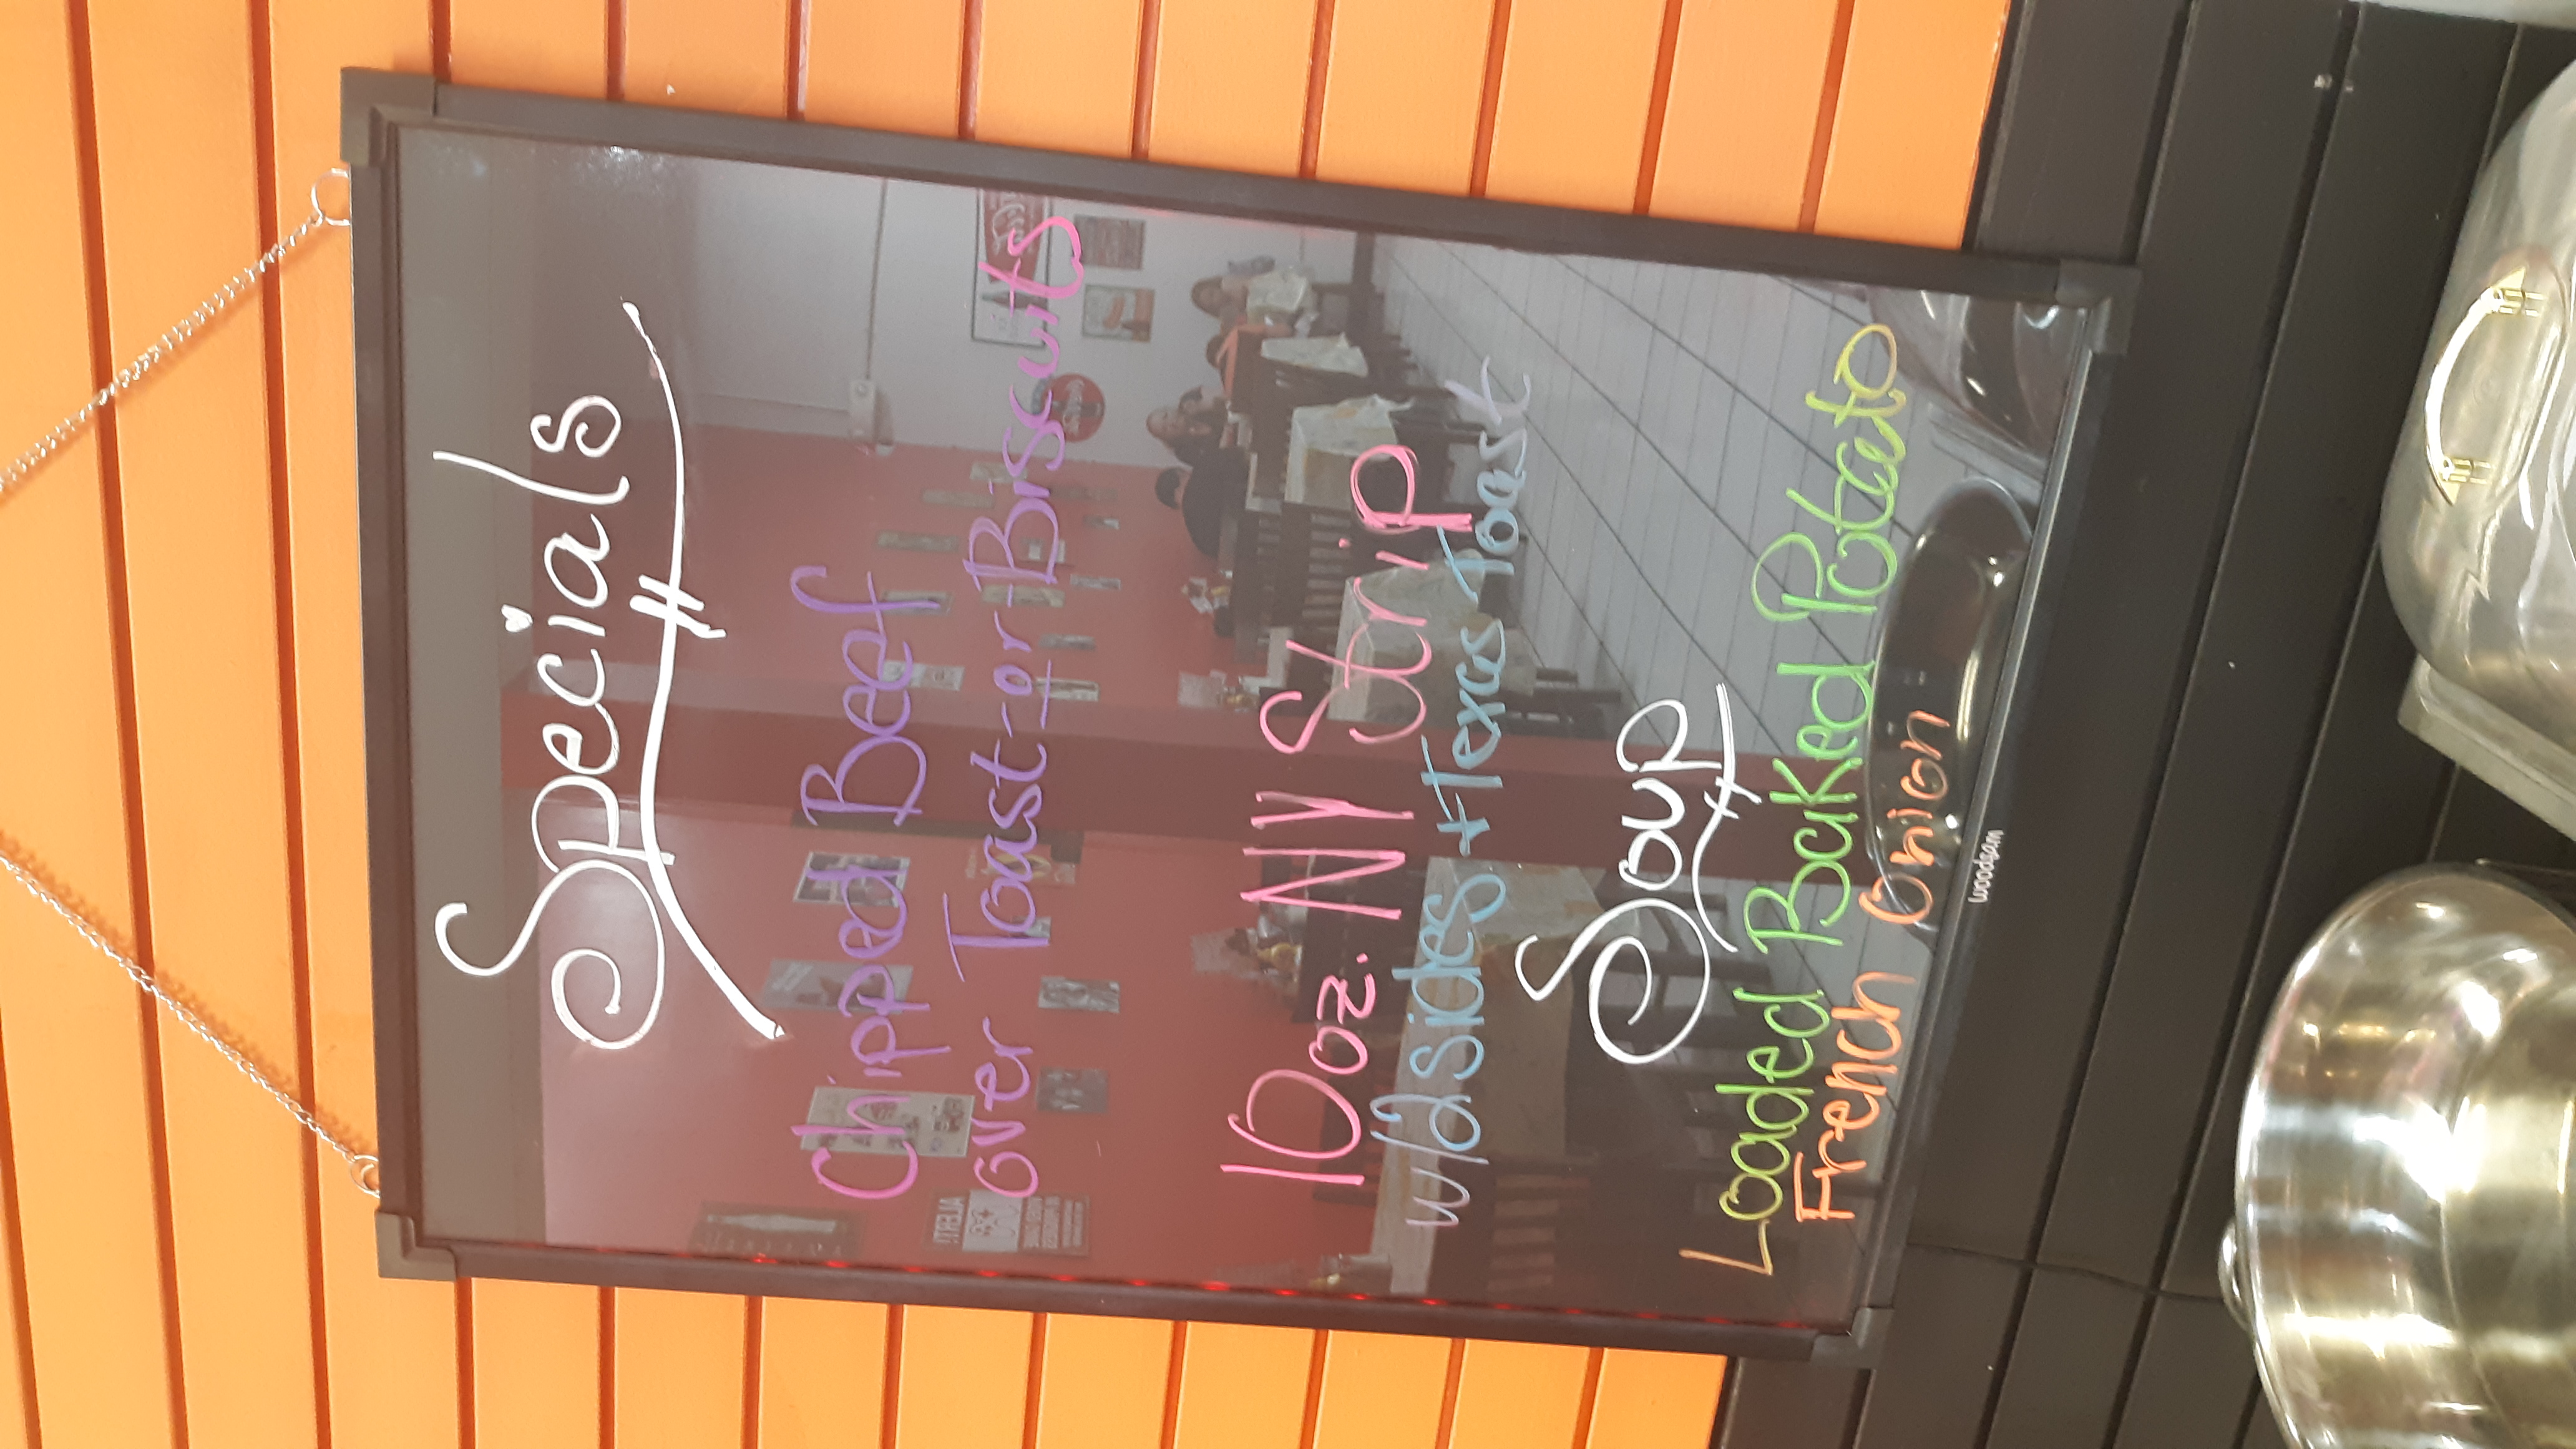 Specials
Chipped Beef
over Toast -or- Biscuits
10oz. NY Strip
w/2 sides + Texas Toast
Soup
Loaded Baked Potato
French onion
woodsam